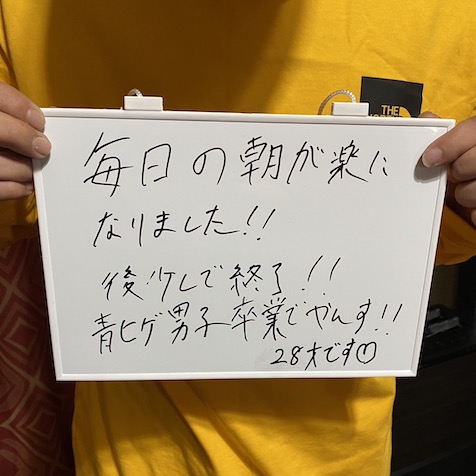 THE
毎日の朝が楽に
なりました!!
後少しで終了!!
青ヒゲ男子卒業でやんす!!
28才です